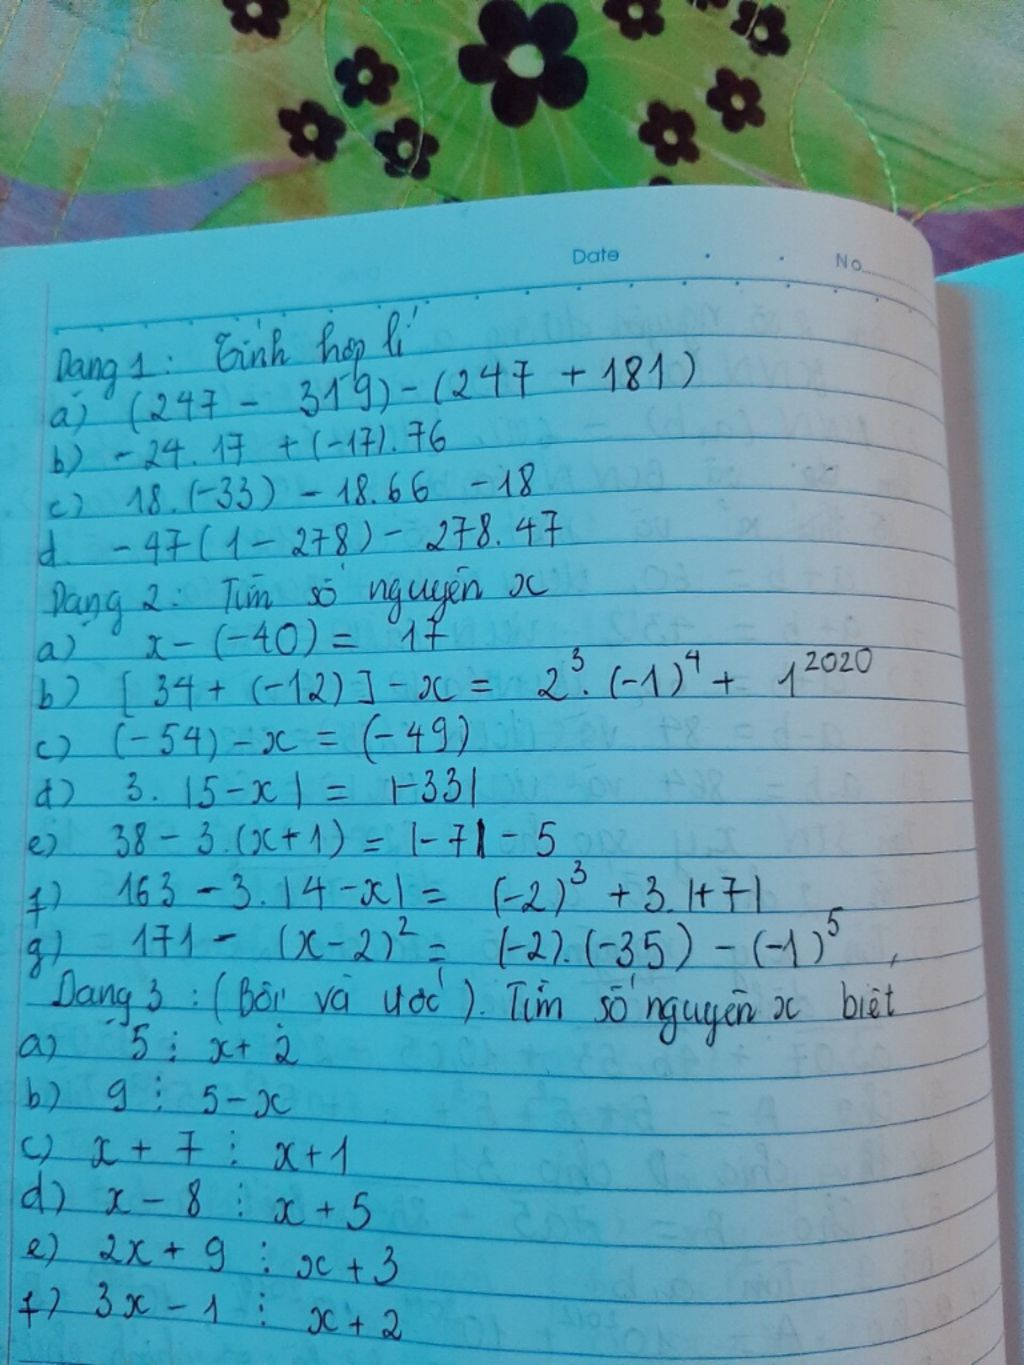 Date . . No
Dạng 1: Tính hợp lí
a) (247 - 319) - (247 + 181)
b) -24.17 + (-17).76
c) 18.(-33) - 18.66 - 18
d. -47(1 - 278) - 278.47
Dạng 2: Tìm số nguyên x
a) x - (-40) = 17
b) [34 + (-12)] - x = 2³.(-1)⁴ + 1²⁰²⁰
c) (-54) - x = (-49)
d) 3.|5 - x| = |-33|
e) 38 - 3.(x+1) = |-7| - 5
f) 163 - 3.|4 - x| = (-2)³ + 3.|+7|
g) 171 - (x - 2)² = (-2).(-35) - (-1)⁵,
Dạng 3: (Bội và ước). Tìm số nguyên x biết
a) 5 ⋮ x + 2
b) 9 ⋮ 5 - x
c) x + 7 ⋮ x + 1
d) x - 8 ⋮ x + 5
e) 2x + 9 ⋮ x + 3
f) 3x - 1 ⋮ x + 2